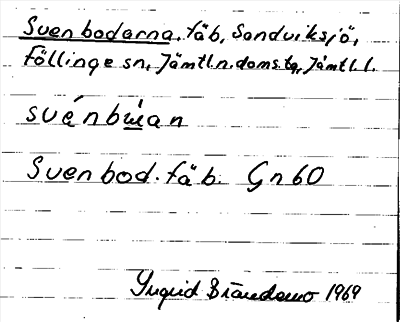 Svenbodarna, fäb, Sandviksjö,
Föllinge sn, Jämtl.n.doms.tg, Jämtl.l.
svénbu̲̍an
Svenbod. fäb. Gn 60
Ingrid Brändemo 1969